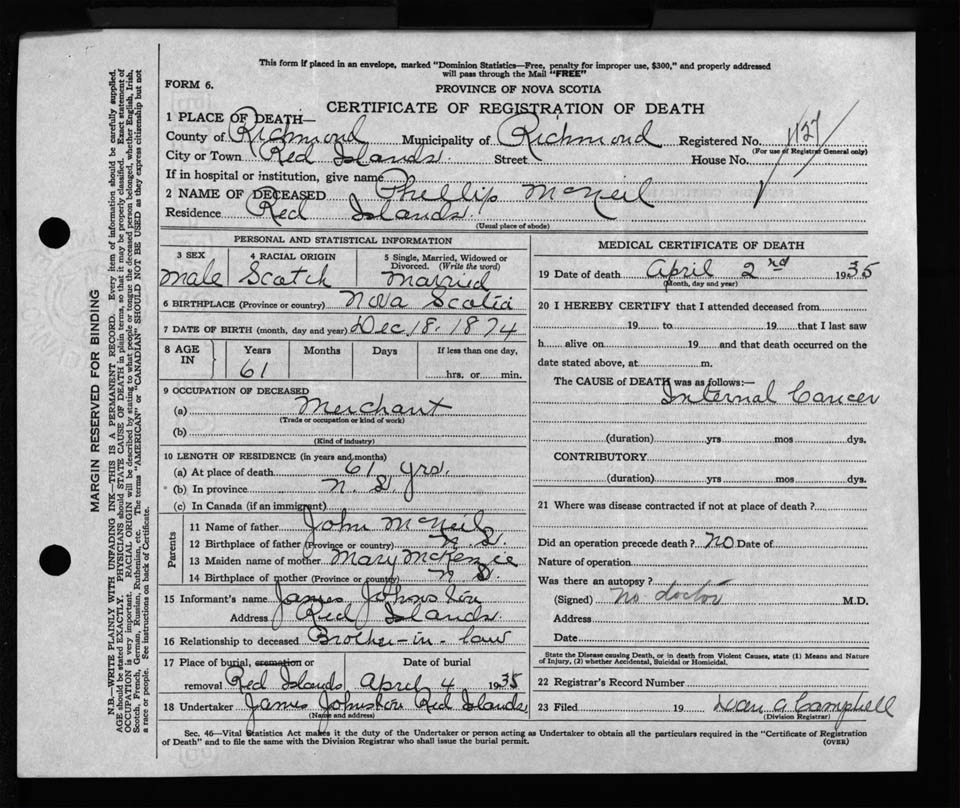 This form if placed in an envelope, marked "Dominion Statistics—Free, penalty for improper use, $300," and properly addressed
will pass through the Mail "FREE"
FORM 6.
PROVINCE OF NOVA SCOTIA
CERTIFICATE OF REGISTRATION OF DEATH
1 PLACE OF DEATH—
County of Richmond Municipality of Richmond Registered No. 1127
(For use of Registrar General only)
City or Town Red Islands. Street House No.
If in hospital or institution, give name
2 NAME OF DECEASED Phillip McNeil
Residence Red Islands.
(Usual place of abode)
PERSONAL AND STATISTICAL INFORMATION
3 SEX 4 RACIAL ORIGIN 5 Single, Married, Widowed or
Divorced. (Write the word)
Male Scotch Married
6 BIRTHPLACE (Province or country) Nova Scotia
7 DATE OF BIRTH (month, day and year) Dec 18. 1874
8 AGE IN Years Months Days If less than one day,
61 hrs. or min.
9 OCCUPATION OF DECEASED
(a) Merchant
(Trade or occupation or kind of work)
(b)
(Kind of industry)
10 LENGTH OF RESIDENCE (in years and months)
(a) At place of death 61 yrs.
(b) In province N. S
(c) In Canada (if an immigrant)
Parents
11 Name of father John McNeil
12 Birthplace of father (Province or country) N. S.
13 Maiden name of mother Mary McKenzie
14 Birthplace of mother (Province or country) N S.
15 Informant's name James Johnston
Address Red Islands
16 Relationship to deceased Brother-in-law
17 Place of burial, cremation or Date of burial
removal Red Islands April 4 1935
18 Undertaker James Johnston Red Islands
(Name and address)
MEDICAL CERTIFICATE OF DEATH
19 Date of death April 2nd 1935
(Month, day and year)
20 I HEREBY CERTIFY that I attended deceased from
19 to 19 that I last saw
h alive on 19 and that death occurred on the
date stated above, at m.
The CAUSE of DEATH was as follows:—
Internal Cancer
(duration) yrs mos dys.
CONTRIBUTORY
(duration) yrs mos dys.
21 Where was disease contracted if not at place of death?
Did an operation precede death? No Date of
Nature of operation
Was there an autopsy?
(Signed) No doctor M.D.
Address
Date
State the Disease causing Death, or in death from Violent Causes, state (1) Means and Nature
of Injury, (2) whether Accidental, Suicidal or Homicidal.
22 Registrar's Record Number
23 Filed 19 A Campbell
(Division Registrar)
Sec. 46—Vital Statistics Act makes it the duty of the Undertaker or person acting as Undertaker to obtain all the particulars required in the "Certificate of Registration
of Death" and to file the same with the Division Registrar who shall issue the burial permit.
(OVER)
MARGIN RESERVED FOR BINDING
N.B.—WRITE PLAINLY WITH UNFADING INK—THIS IS A PERMANENT RECORD. Every item of information should be carefully supplied.
AGE should be stated EXACTLY. PHYSICIANS should STATE CAUSE OF DEATH in plain terms, so that it may be properly classified. Exact statement of
OCCUPATION is very important. RACIAL ORIGIN will be described by stating to what people or tongue the deceased person belonged, whether English, Irish,
Scotch, French, German, Russian, Ruthenian, etc. The terms "AMERICAN" or "CANADIAN" SHOULD NOT BE USED as they express citizenship but not
a race or people. See instructions on back of Certificate.